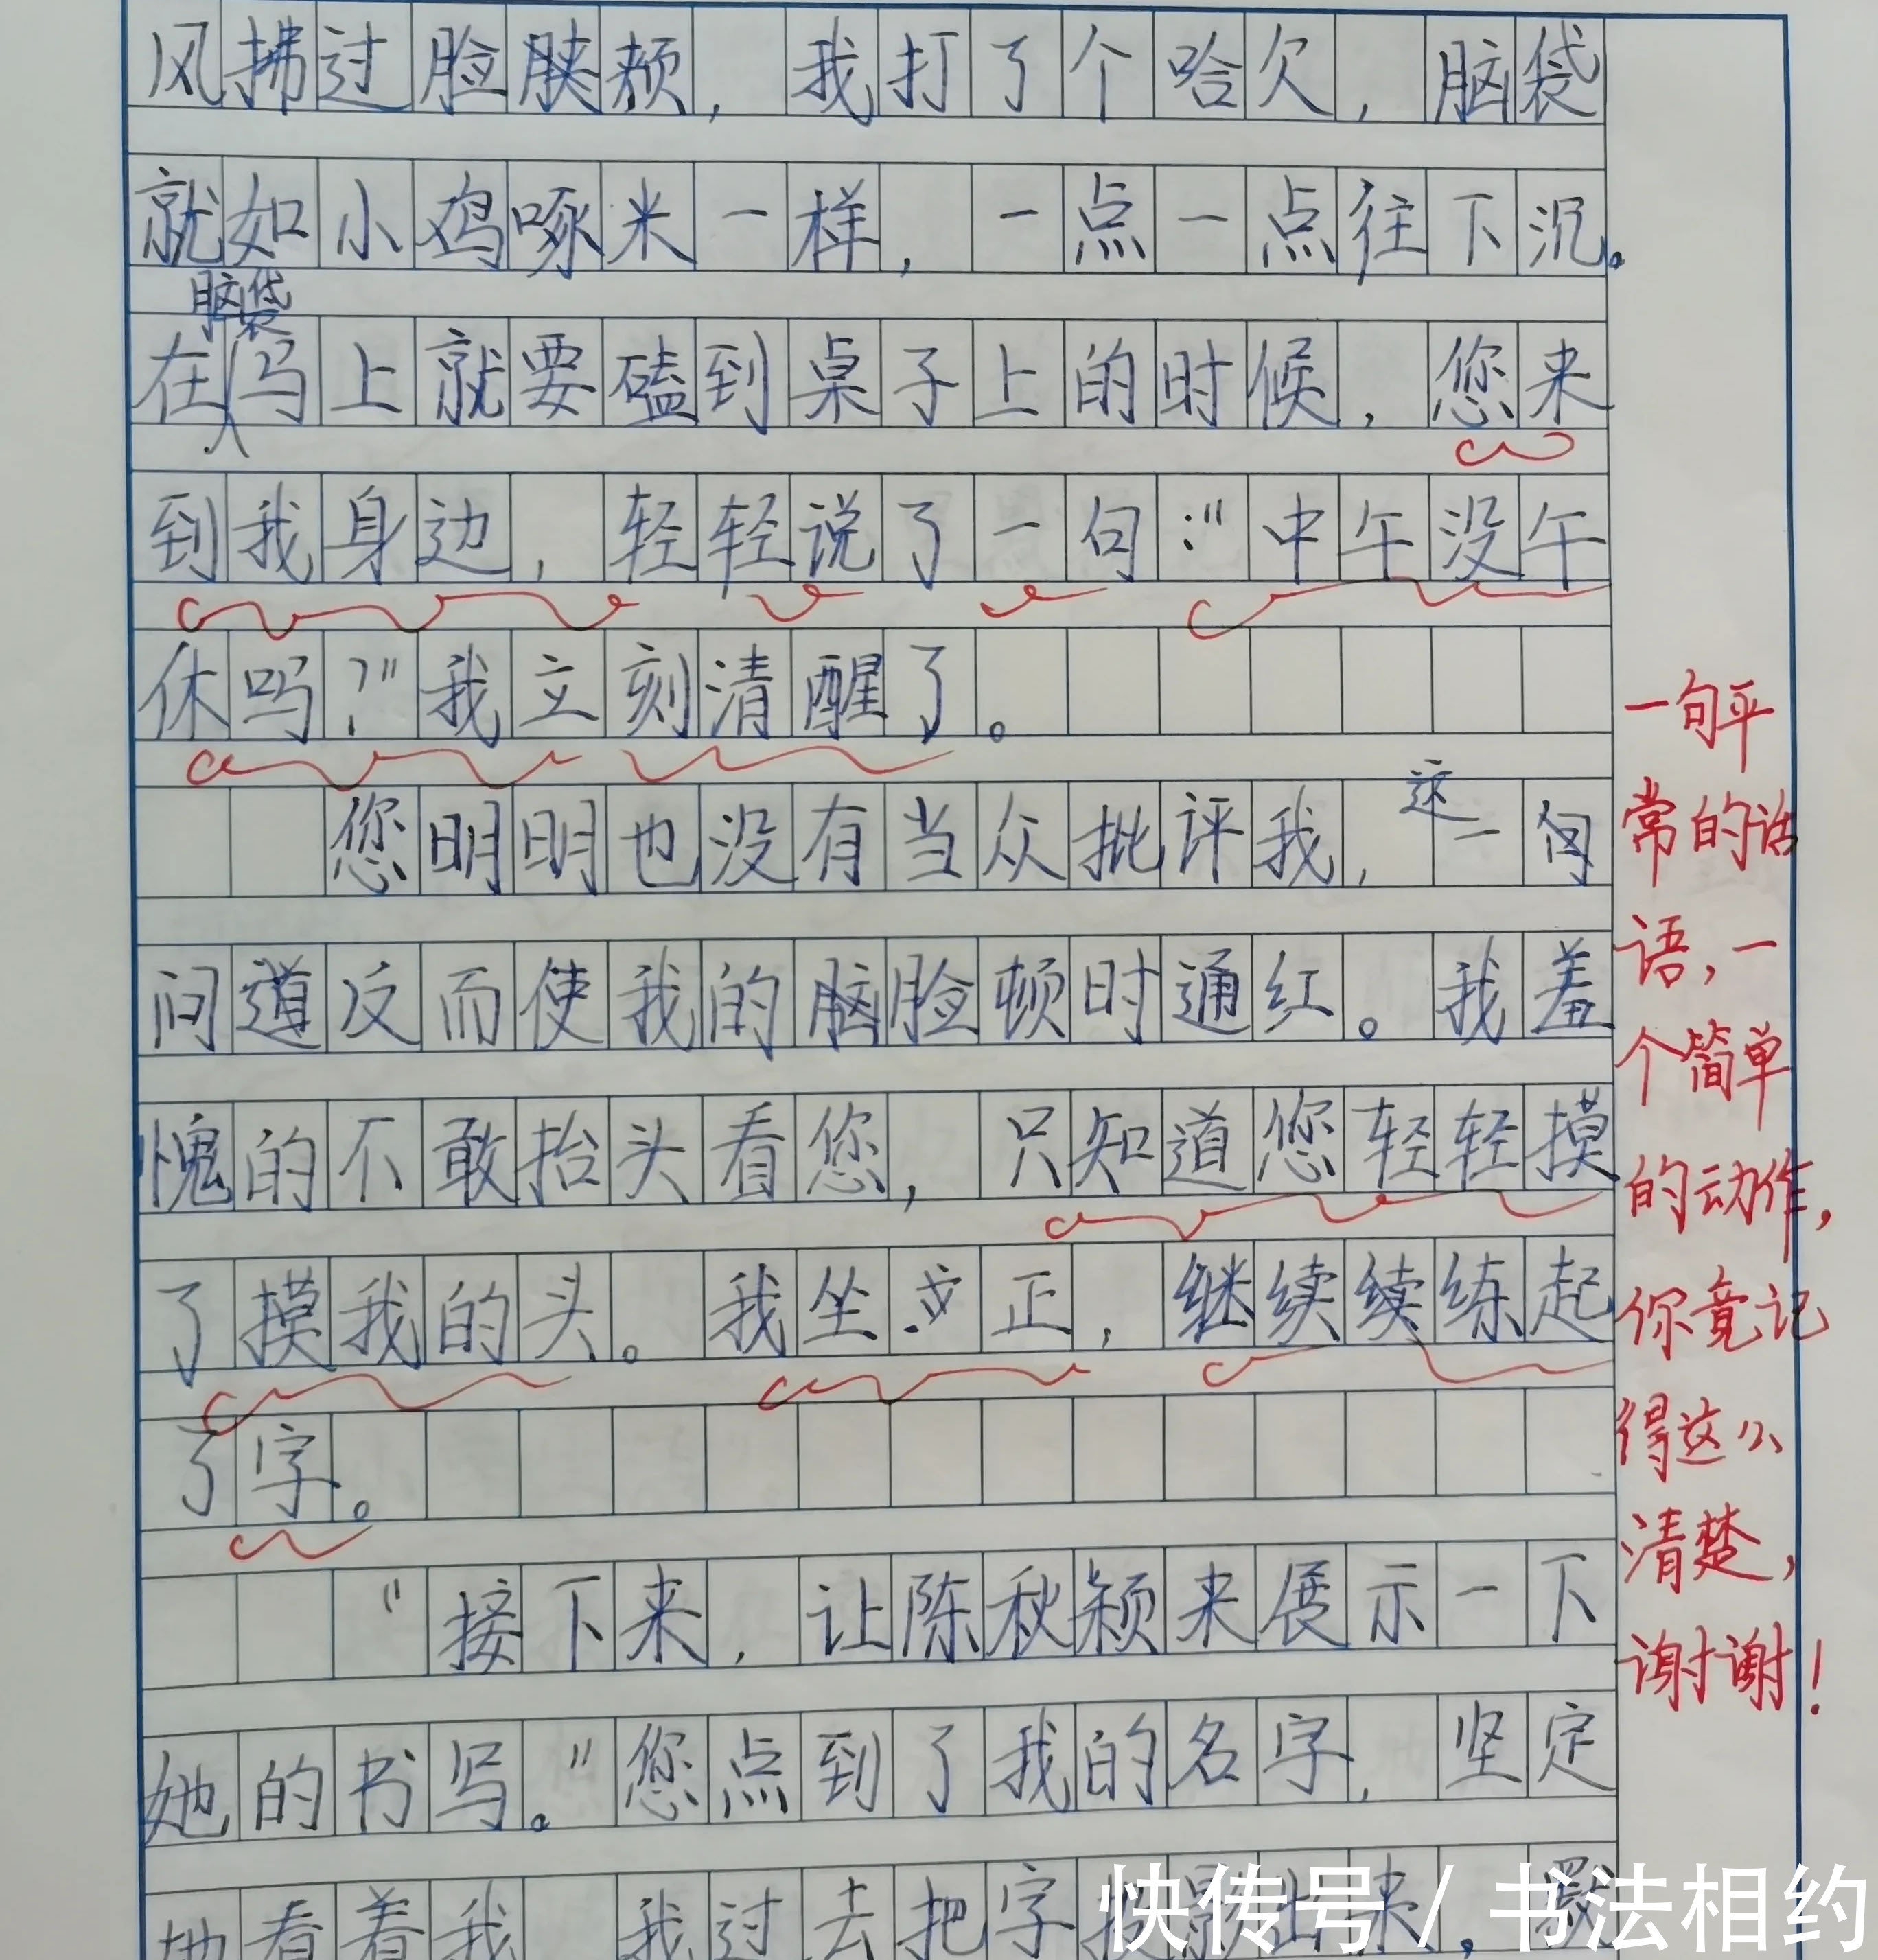 风拂过脸脥颊，我打了个哈欠，脑袋
就如小鸡啄米一样，一点一点往下沉。
脑袋
在马上就要磕到桌子上的时候，您来
到我身边，轻轻说了一句："中午没午
休吗？"我立刻清醒了。
这
您明明也没有当众批评我，一句
问道反而使我的脑脸顿时通红。我羞
愧的不敢抬头看您，只知道您轻轻摸
了摸我的头。我坐正，继续续练起
了字。
"接下来，让陈秋颖来展示一下
她的书写。"您点到了我的名字，坚定
地看着我 我过去把字 出来，
一句平
常的话
语，一
个简单
的动作，
你竟记
得这么
清楚，
谢谢！
快传号 / 书法相约